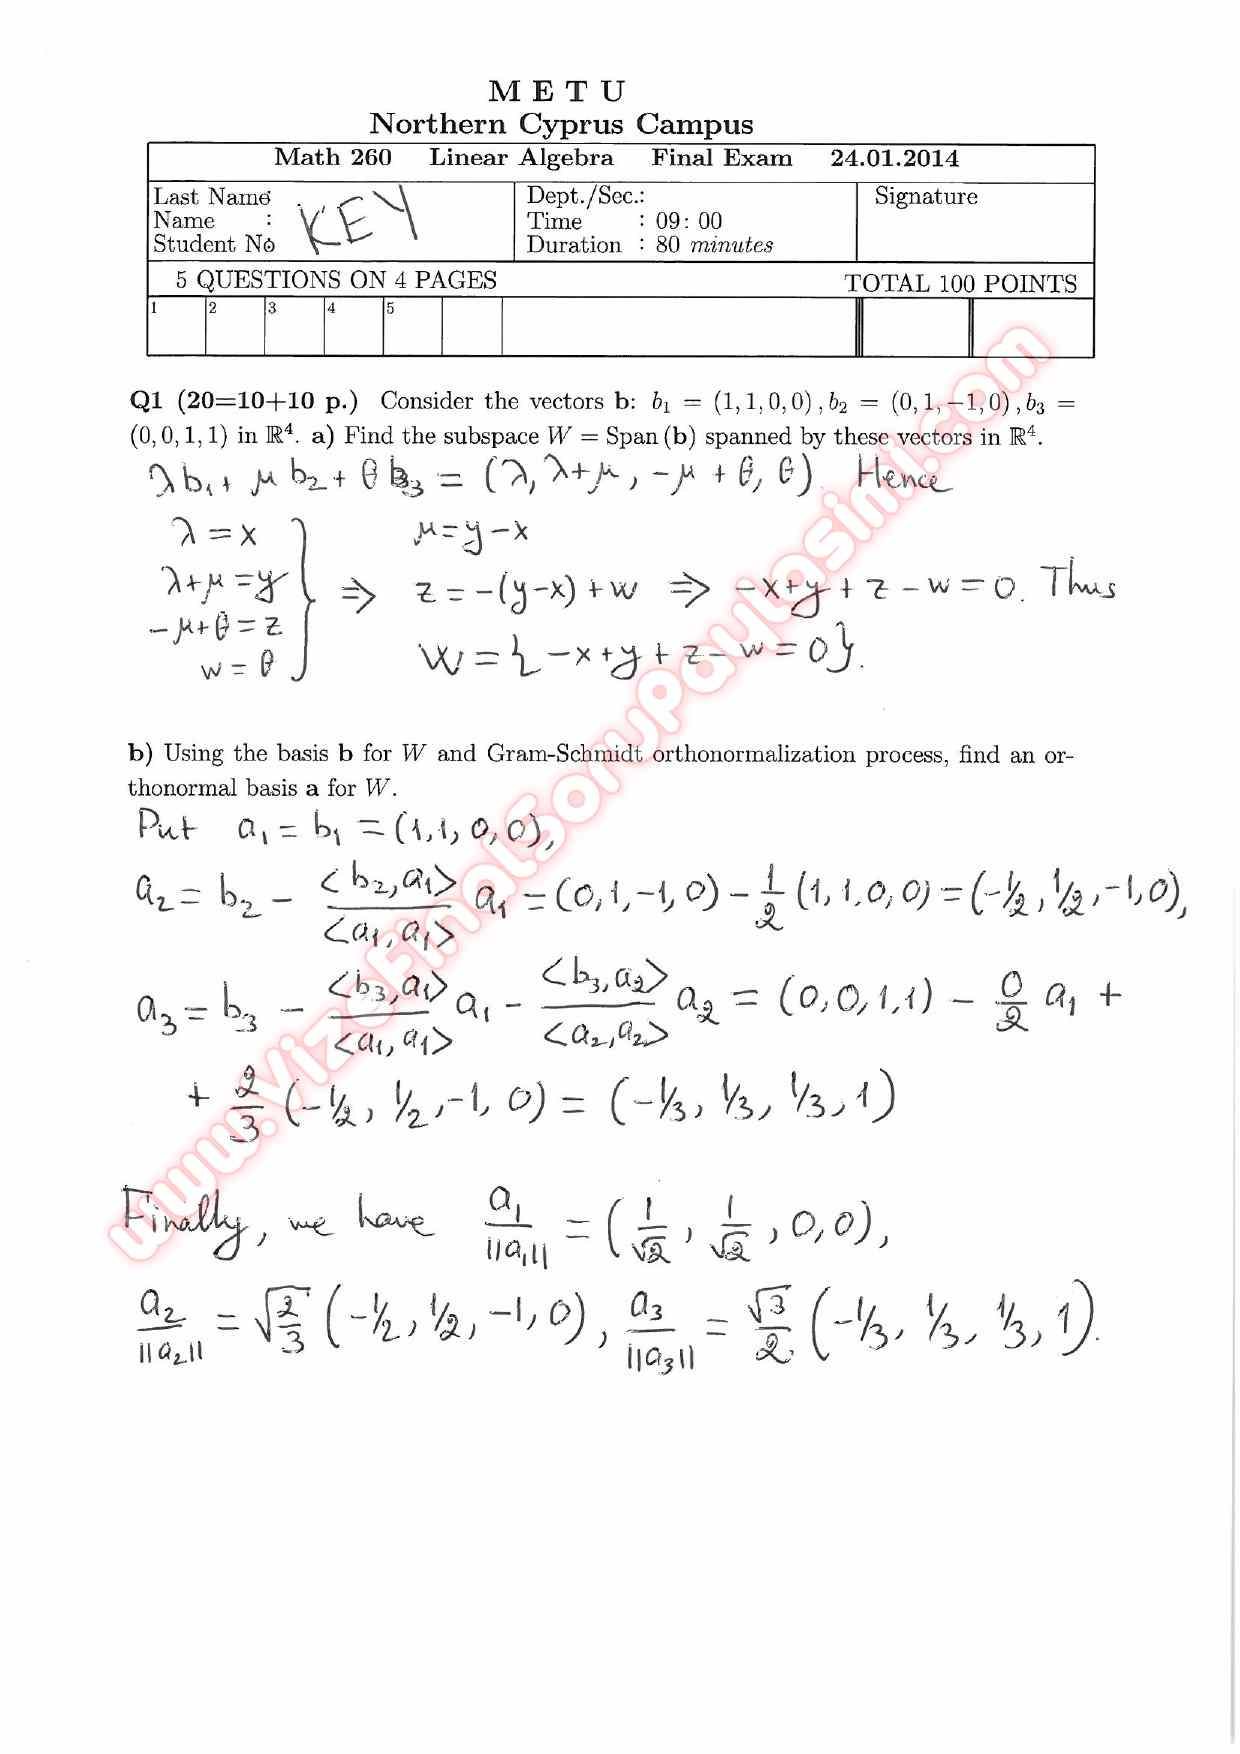 M E T U
Northern Cyprus Campus
Math 260 Linear Algebra Final Exam 24.01.2014
Last Name :
Name :
Student No :
KEY
Dept./Sec.:
Time : 09: 00
Duration : 80 minutes
Signature
5 QUESTIONS ON 4 PAGES TOTAL 100 POINTS
1 2 3 4 5
Q1 (20=10+10 p.) Consider the vectors b: b₁ = (1,1,0,0), b₂ = (0,1,−1,0), b₃ =
(0,0,1,1) in ℝ⁴. a) Find the subspace W = Span(b) spanned by these vectors in ℝ⁴.
λb₁ + μb₂ + θb₃ = (λ, λ+μ, -μ+θ, θ). Hence
λ = x μ = y - x
λ+μ = y ⇒ z = -(y-x) + w ⇒ -x+y+z-w = 0. Thus
-μ+θ = z
w = θ W = {-x+y+z-w = 0}.
b) Using the basis b for W and Gram-Schmidt orthonormalization process, find an or-
thonormal basis a for W.
Put a₁ = b₁ = (1,1,0,0),
a₂ = b₂ - <b₂,a₁>/<a₁,a₁> a₁ = (0,1,-1,0) - 1/2 (1,1,0,0) = (-1/2, 1/2, -1, 0),
a₃ = b₃ - <b₃,a₁>/<a₁,a₁> a₁ - <b₃,a₂>/<a₂,a₂> a₂ = (0,0,1,1) - 0/2 a₁ +
+ 2/3 (-1/2, 1/2, -1, 0) = (-1/3, 1/3, 1/3, 1)
Finally, we have a₁/||a₁|| = (1/√2, 1/√2, 0, 0),
a₂/||a₂|| = √(2/3) (-1/2, 1/2, -1, 0), a₃/||a₃|| = √3/2 (-1/3, 1/3, 1/3, 1).
www.VizeFinalSoruPaylasimi.com